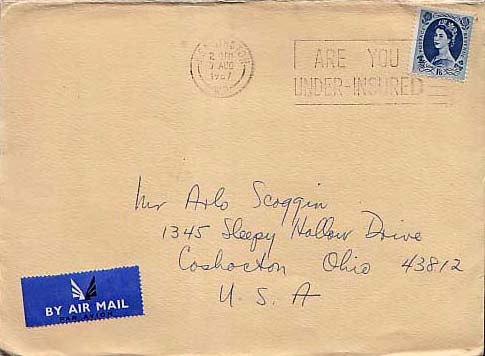 KENSINGTON
7 AUG
1967
ARE YOU
UNDER-INSURED
1/6
Mr Arlo Scoggin
1345 Sleepy Hollow Drive
Coshocton Ohio 43812
U. S. A
BY AIR MAIL
PAR AVION